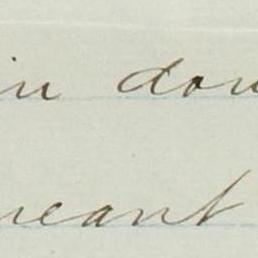 in don
meant